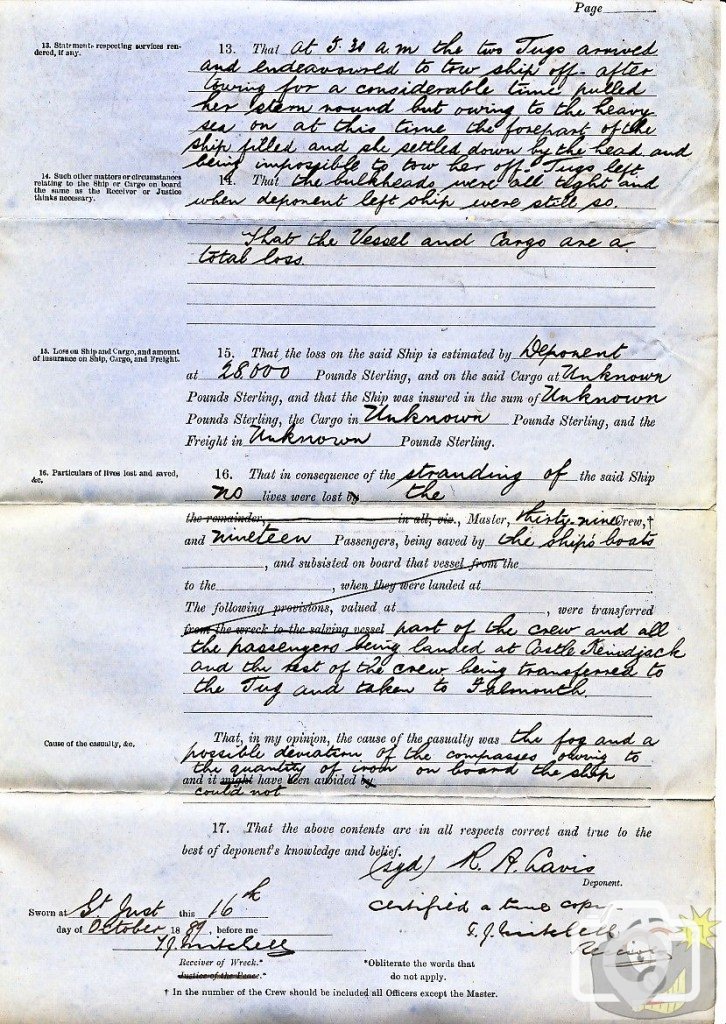 Page
13. Statements respecting services ren-
dered, if any.
13. That at 5.30 a.m the two Tugs arrived
and endeavoured to tow ship off. after
towing for a considerable time pulled
her stern round but owing to the heavy
sea on at this time the forepart of the
ship filled and she settled down by the head and
being impossible to tow her off. Tugs left.
14. Such other matters or circumstances
relating to the Ship or Cargo on board
the same as the Receiver or Justice
thinks necessary.
14. That the bulkheads were all tight and
when deponent left ship were still so.
That the Vessel and Cargo are a
total loss.
15. Loss on Ship and Cargo, and amount
of insurance on Ship, Cargo, and Freight.
15. That the loss on the said Ship is estimated by Deponent
at 28000 Pounds Sterling, and on the said Cargo at Unknown
Pounds Sterling, and that the Ship was insured in the sum of Unknown
Pounds Sterling, the Cargo in Unknown Pounds Sterling, and the
Freight in Unknown Pounds Sterling.
16. Particulars of lives lost and saved,
&c.
16. That in consequence of the stranding of the said Ship
no lives were lost by the
the remainder, in all, viz., Master, thirty-nine Crew,†
and nineteen Passengers, being saved by the ship's boats
, and subsisted on board that vessel from the
to the , when they were landed at
The following provisions, valued at , were transferred
from the wreck to the salving vessel part of the crew and all
the passengers being landed at Castle Kenidjack
and the rest of the crew being transferred to
the Tug and taken to Falmouth.
Cause of the casualty, &c.
That, in my opinion, the cause of the casualty was the fog and a
possible deviation of the compasses owing to
the quantity of iron on board the ship
and it might have been avoided by
could not
17. That the above contents are in all respects correct and true to the
best of deponent's knowledge and belief.
(sgd) R. A. Cavis
Deponent.
Sworn at St Just this 16th
day of October 1889, before me
T.J. Mitchell
Receiver of Wreck.*
Justice of the Peace.*
certified a true copy
T. J. Mitchell
Receiver
*Obliterate the words that
do not apply.
† In the number of the Crew should be included all Officers except the Master.